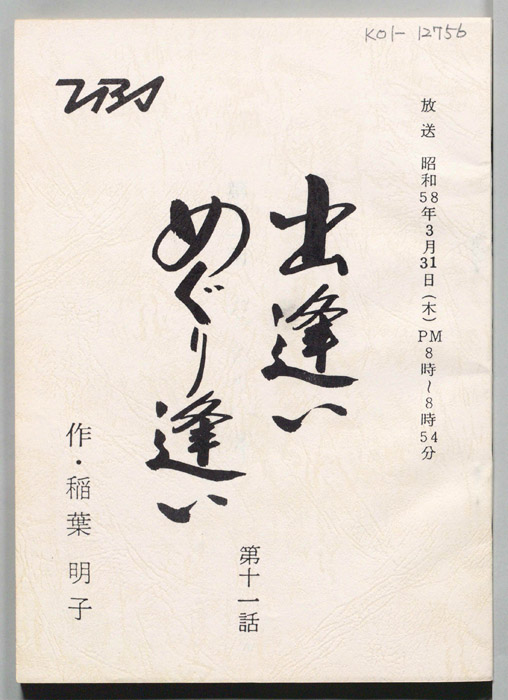 K01-12756
TBS
放送 昭和58年3月31日(木)PM8時~8時54分
出逢い
めぐり逢い
第十一話
作・稲葉明子